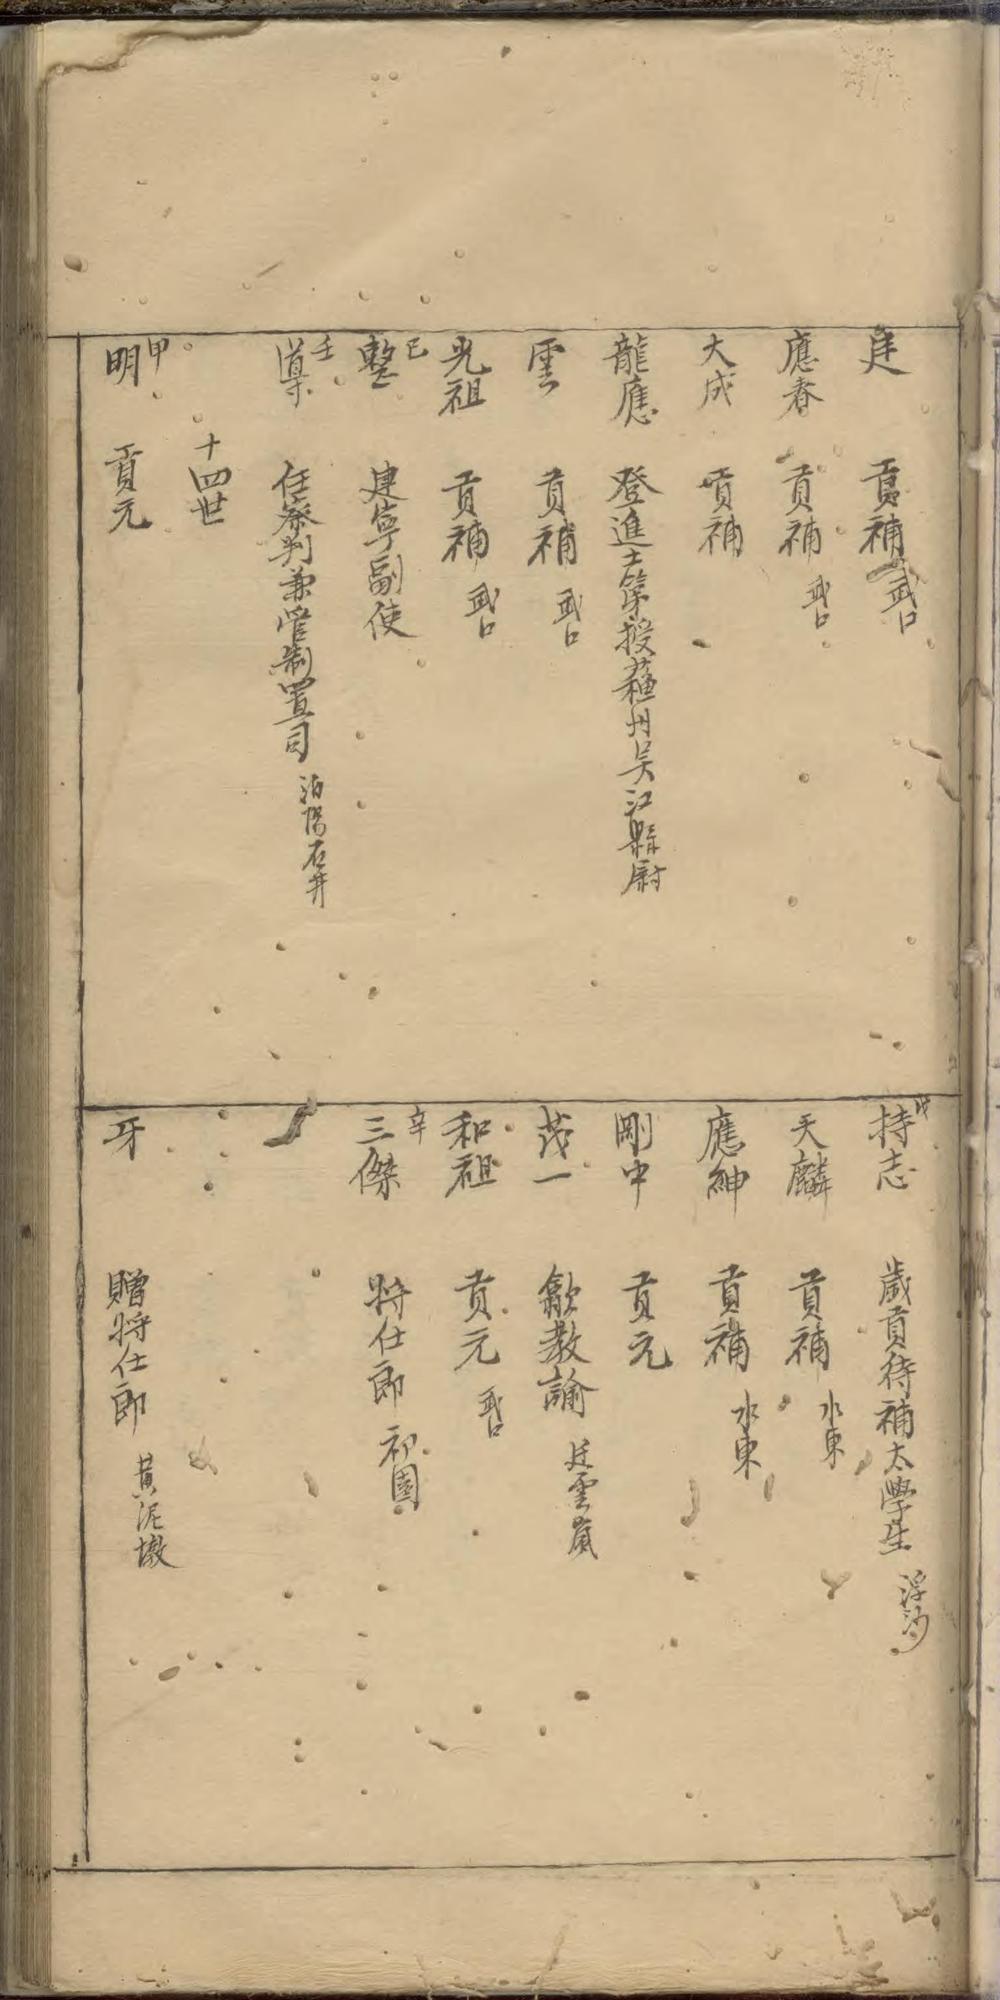 廷 貢補 武口
應春 貢補 武口
大成 貢補
龍應 登進士第授蘇州吴江縣尉
雲 貢補 武口
光祖 貢補 武口
己 整 建寧副使
壬 導 任察判兼管制置司 泊陽石井
十四世
甲 明 貢元
戊 持志 歲貢待補太學生 浮沙
天麟 貢補 水東
應紳 貢補 水東
剛中 貢元
茂一 歙教諭 遷雲嵐
和祖 貢元 武口
辛 三傑 將仕郎 祁園
牙 贈將仕郎 黄泥墩